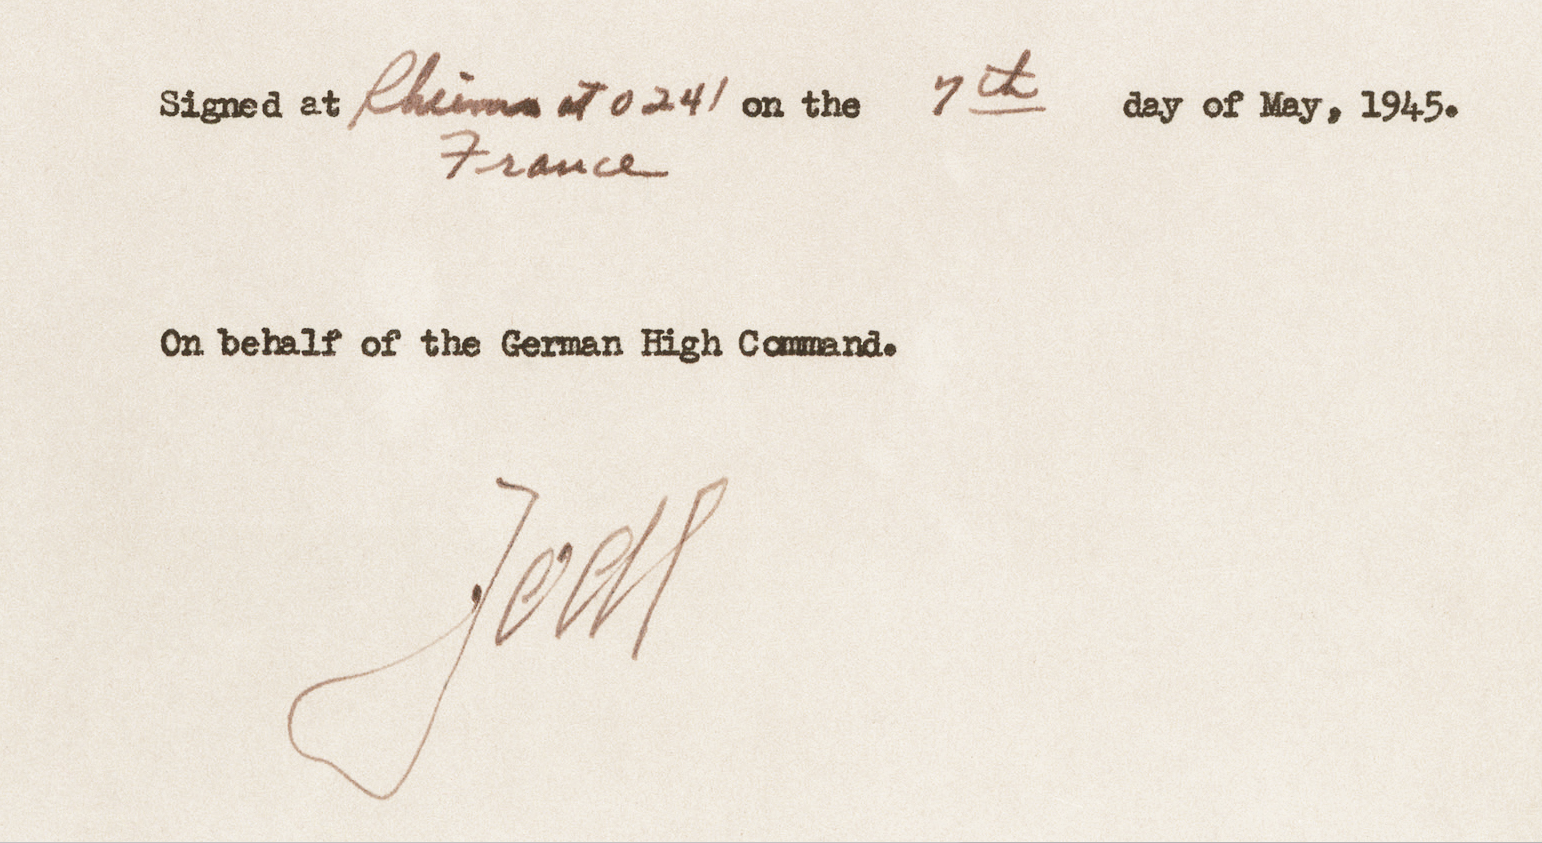 Signed at Rheims at 0241 on the 7th day of May, 1945.
France
On behalf of the German High Command.
Jodl